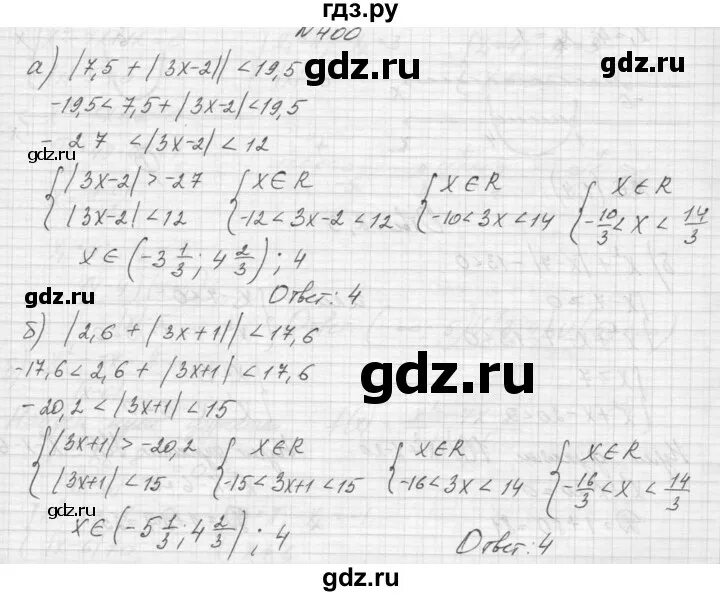 гдз.ру
N 400
gdz.ru
gdz.ru
а) |7,5 + |3x-2|| < 19,5
-19,5 < 7,5 + |3x-2| < 19,5
-27 < |3x-2| < 12
gdz.ru
{ |3x-2| > -27 { x ∈ R { x ∈ R { x ∈ R
|3x-2| < 12 -12 < 3x-2 < 12 -10 < 3x < 14 -10/3 < x < 14/3
x ∈ (-3 1/3; 4 2/3); 4
gdz.ru
Ответ: 4
б) |2,6 + |3x+1|| < 17,6
-17,6 < 2,6 + |3x+1| < 17,6
gdz.ru
-20,2 < |3x+1| < 15
{ |3x+1| > -20,2 { x ∈ R { x ∈ R { x ∈ R
|3x+1| < 15 -15 < 3x+1 < 15 -16 < 3x < 14 -16/3 < x < 14/3
gdz.ru
x ∈ (-5 1/3; 4 2/3); 4
Ответ: 4
gdz.ru
gdz.ru